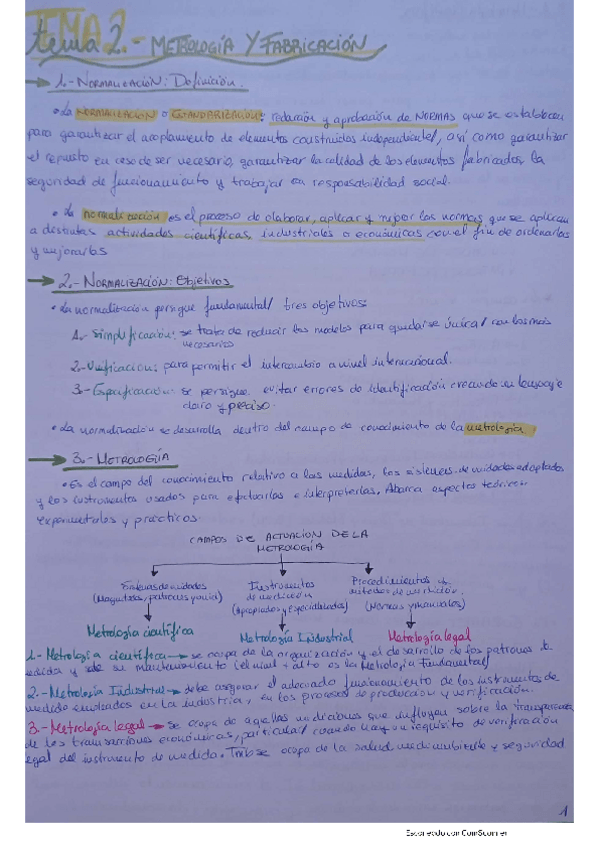 tema 2.- METROLOGÍA Y FABRICACIÓN
1.- NORMALIZACIÓN: Definición.
• La NORMALIZACIÓN o ESTANDARIZACIÓN: redacción y aprobación de NORMAS que se establecen
para garantizar el acoplamiento de elementos construidos independiente/, así como garantizar
el repuesto en caso de ser necesario, garantizar la calidad de los elementos fabricados, la
seguridad de funcionamiento y trabajar en responsabilidad social.
• La normalización es el proceso de elaborar, aplicar y mejorar las normas que se aplican
a distintas actividades científicas, industriales o económicas con el fin de ordenarlas
y mejorarlas
2.- NORMALIZACIÓN: Objetivos
• La normalización persigue fundamental/ tres objetivos:
1.- Simplificación: se trata de reducir los modelos para quedarse única/ con los más
necesarios
2.- Unificación: para permitir el intercambio a nivel internacional.
3.- Especificación: se persigue evitar errores de identificación creando un lenguaje
claro y preciso.
• La normalización se desarrolla dentro del campo de conocimiento de la metrología
3.- METROLOGÍA
• Es el campo del conocimiento relativo a las medidas, los sistemas de unidades adoptados
y los instrumentos usados para efectuarlas e interpretarlas. Abarca aspectos teóricos
experimentales y prácticos.
CAMPOS DE ACTUACIÓN DE LA
METROLOGÍA
Sistemas de unidades
(Magnitudes, patrones y unid)
Metrología científica
Instrumentos
de medición
(Apropiados y especializados)
Metrología Industrial
Procedimientos y
métodos de medición.
(Normas y manuales)
Metrología legal
1.- Metrología científica → se ocupa de la organización y el desarrollo de los patrones de
medida y de su mantenimiento (el nivel + alto es la Metrología Fundamental)
2.- Metrología Industrial → debe asegurar el adecuado funcionamiento de los instrumentos de
medida empleados en la industria, en los procesos de producción y verificación.
3.- Metrología legal → se ocupa de aquellas mediciones que influyen sobre la transparencia
de las transacciones económicas, particular/ cuando hay un requisito de verificación
legal del instrumento de medida. Tmb se ocupa de la salud, medio ambiente y seguridad
1
Escaneado con CamScanner